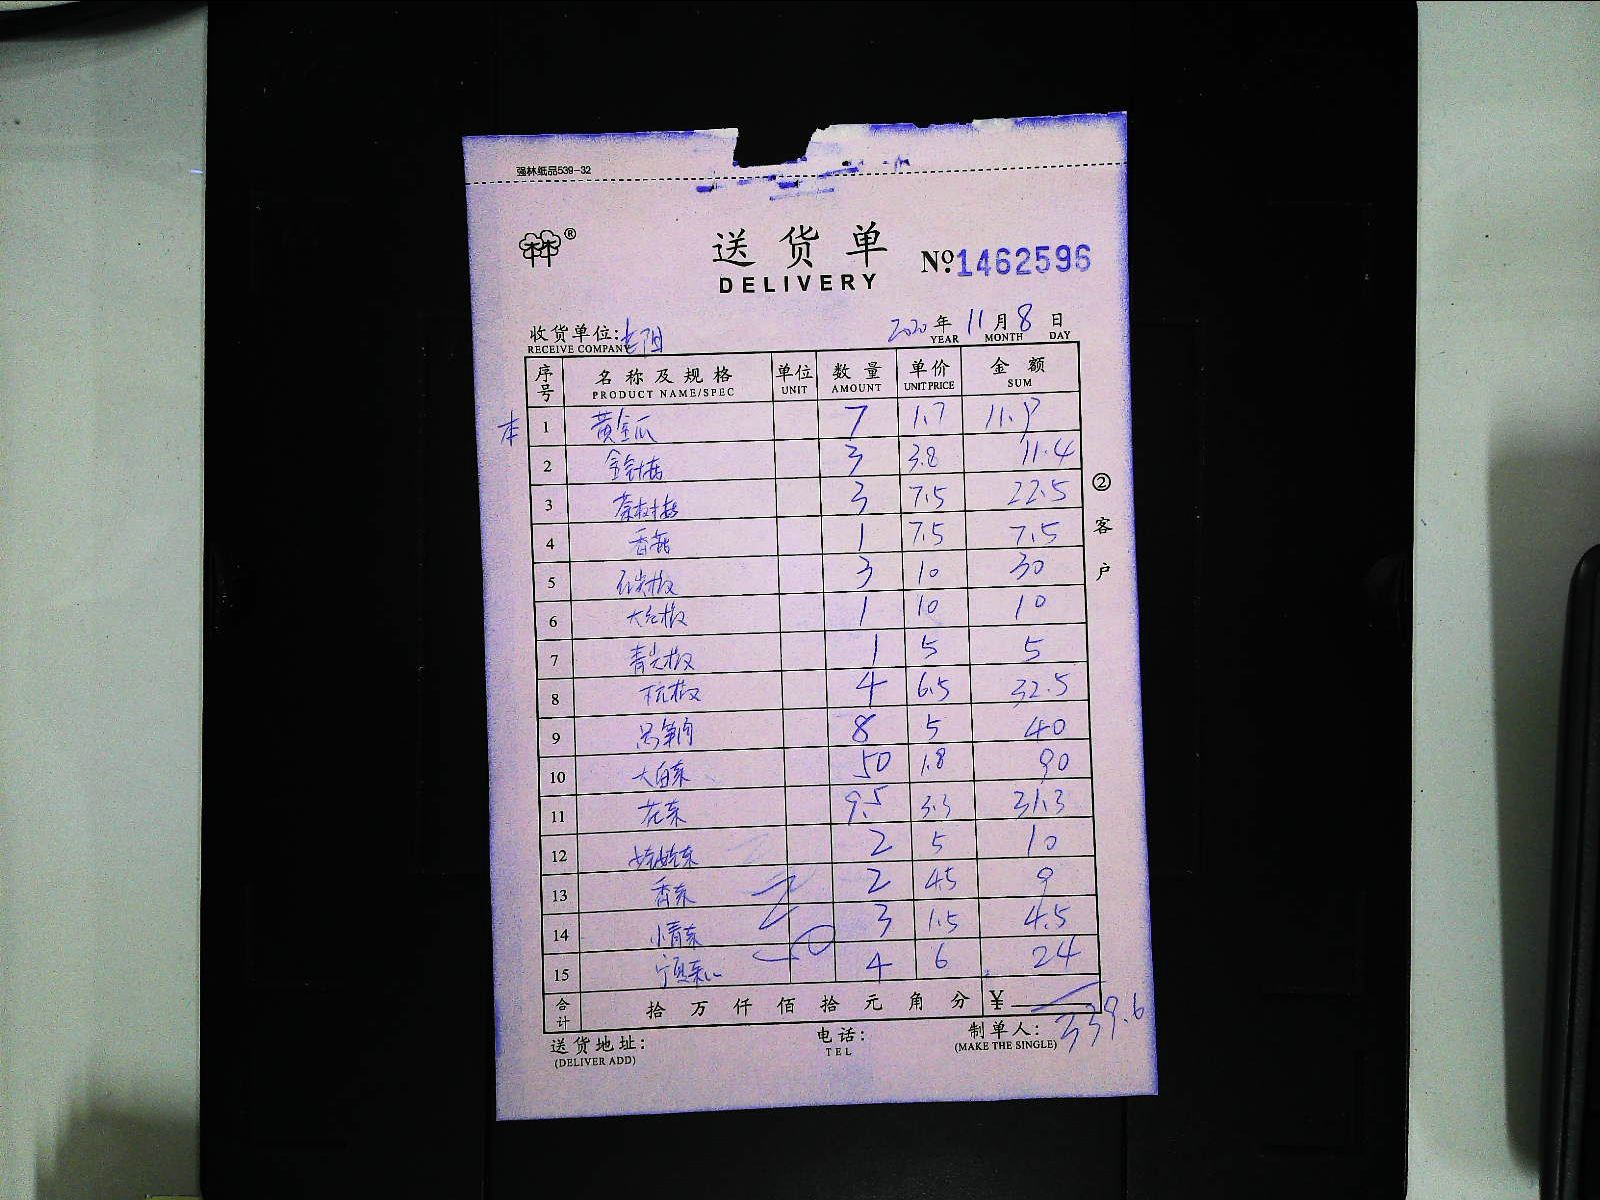 强林纸品539-32
送货单
DELIVERY
®
№1462596
收货单位:
RECEIVE COMPANY
2020年 11月 8日
YEAR MONTH DAY
序号 名称及规格 单位 数量 单价 金额
PRODUCT NAME/SPEC UNIT AMOUNT UNIT PRICE SUM
本 1 黄金瓜 7 1.7 11.9
2 金针菇 3 3.8 11.4
3 茶树菇 3 7.5 22.5
4 香菇 1 7.5 7.5
5 3 10 30
6 大红椒 1 10 10
7 青尖椒 1 5 5
8 杭椒 4 6.5 32.5
9 8 5 40
10 大白菜 50 1.8 90
11 花菜 9.5 3.3 31.3
12 娃娃菜 2 5 10
13 香菜 2 4.5 9
14 小青菜 3 1.5 4.5
15 4 6 24
合计 拾 万 仟 佰 拾 元 角 分 ¥ 339.6
②客户
送货地址: 电话: 制单人:
(DELIVER ADD) TEL (MAKE THE SINGLE)